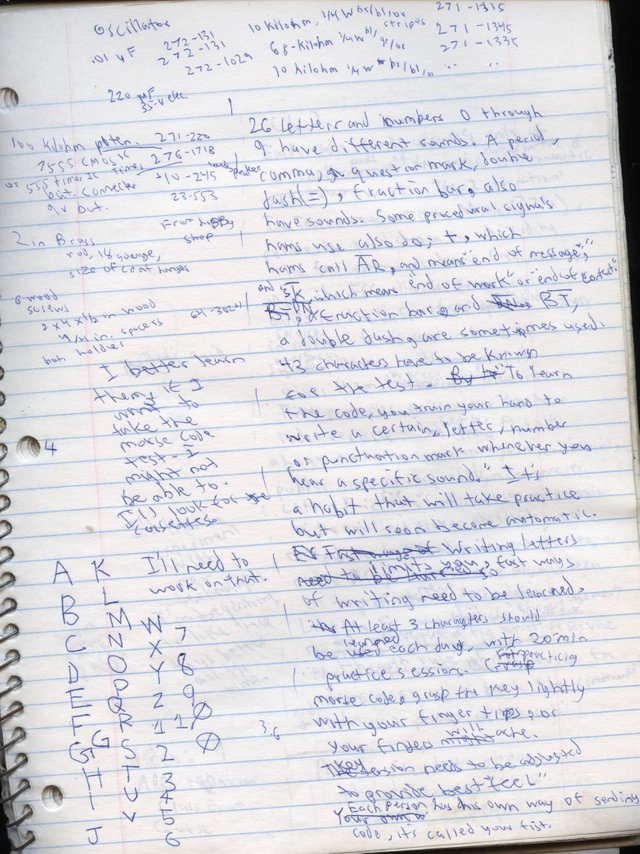 Oscillator
.01 uF 272-131
272-131
272-1029
220 uF
35-V elec.
10 kilohm, 1/4 W br/bl/or stripes 271-1335
68-kilohm 1/4w bl/gr/or 271-1345
10 kilohm 1/4w br/bl/or 271-1335
" "
100 kilohm poten. 271-220
7555 CMOS IC
or 555 timer IC timer 276-1718
loudspeaker 40-245
batt. connector 23-553
9v batt.
From hobby
shop
2 in Brass
rod, 18 guage,
size of coat hanger
6 wood
screws
2 x 4 x 1/2 in wood
1/4 in. spacers 64-3024
batt. holder
I better learn
them if I
want to
take the
morse code
test - I
might not
be able to.
I'll look for
cassettes.
I'll need to
work on that.
26 letters and numbers 0 through
9 have different sounds. A period,
comma, question mark, double
dash(=), fraction bar, also
have sounds. Some procedural signals
hams use also do; +, which
hams call AR, and means "end of message";
and SK, which means "end of work" or "end of contact".
fraction bar, and BT,
a double dash, are sometimes used.
43 characters have to be known
for the test. To learn
the code, you train your hand to
write a certain, letter, number
or punctuation mark whenever you
hear a specific sound." It's
a habit that will take practice
but will soon become automatic.
Writing letters
need to be
limits you, so fast ways
of writing need to be learned.
At least 3 characters should
be learned each day, with 20-min
practice sessions. For practicing
morse code, grasp the key lightly
with your finger tips, or
your fingers will ache.
Key tension needs to be adjusted
to provide best "feel"
Each person has his own way of sending
code, it's called your fist.
4
36
A K
B L
C M W 7
D N X 8
E O Y 9
F P Z
G Q 1
H R 2
I S 3
J T 4
U 5
V 6
Ø